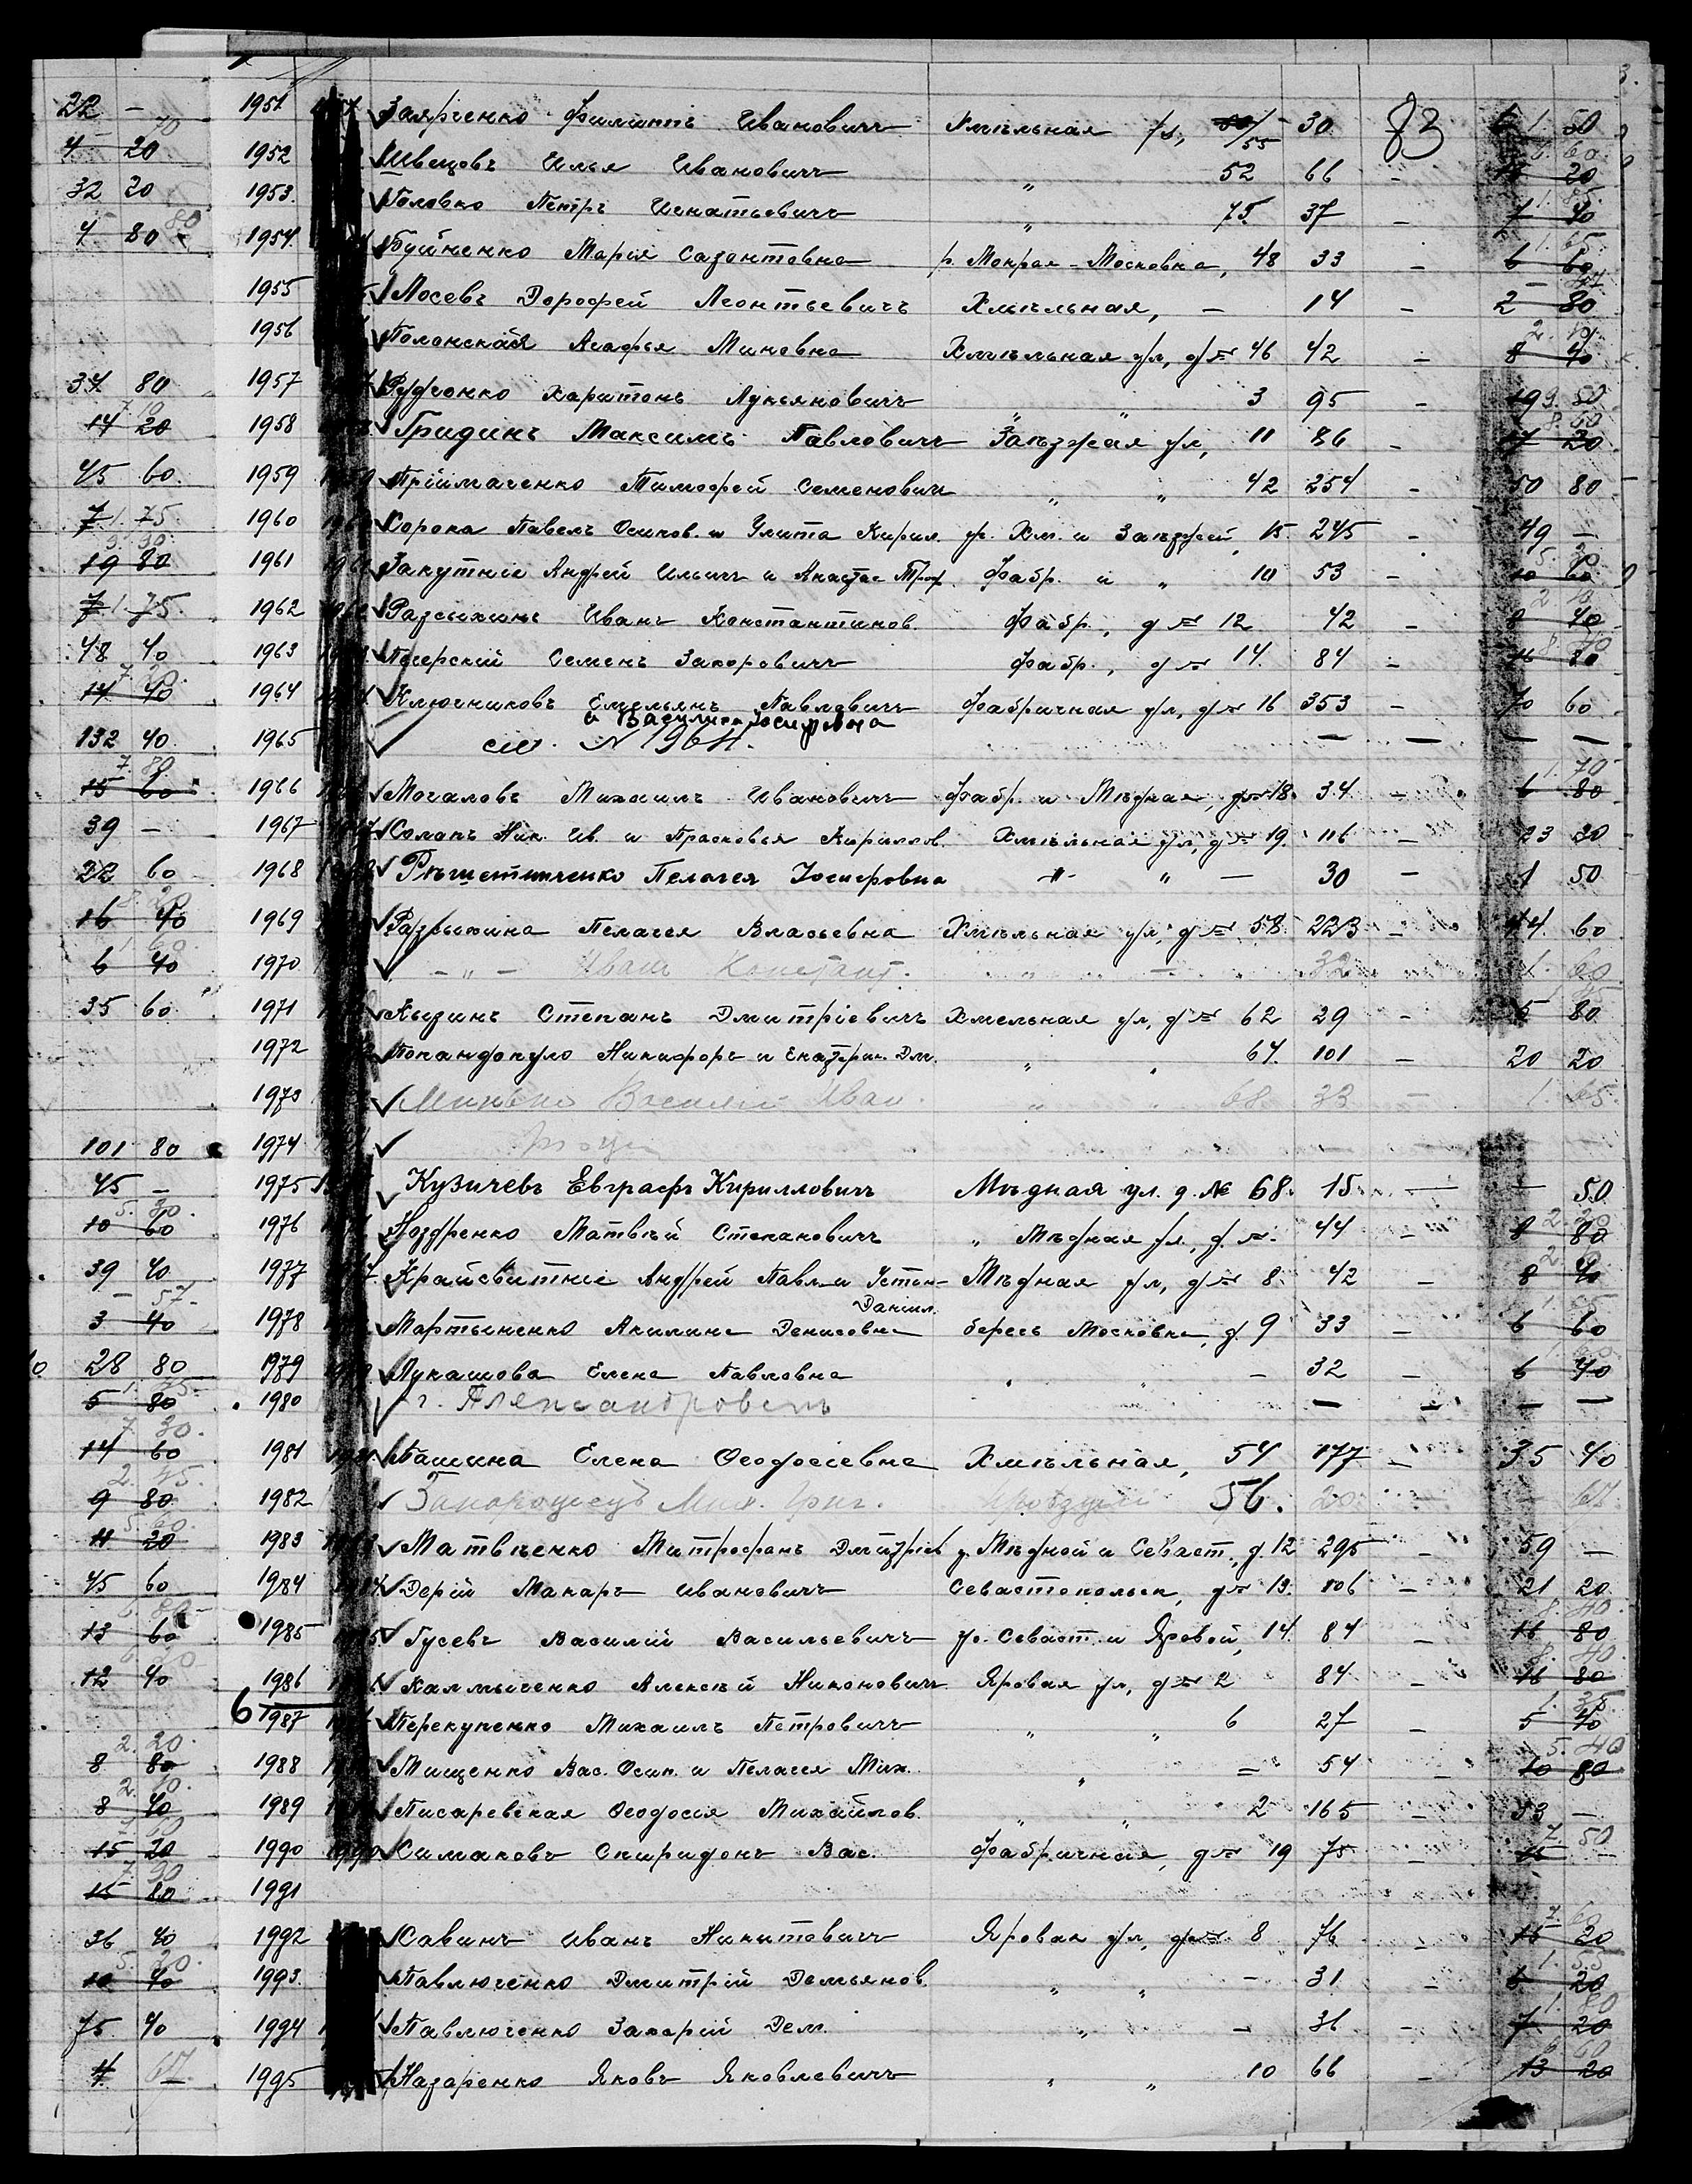 22 — 1951 Заярченко Филиппъ Ивановичъ Хмѣльная ул, 55 30 83 6 1. 50
4 20 1952 Швецовъ Илья Ивановичъ „ 52 66 – 20
32 20 1953. Головко Петръ Игнатьевичъ „ 75. 37 – 7 40 1. 85.
4 80 1954. Буйненко Марія Сазонтовна р. Мокрая-Московка, 48 33 – 6 60 1. 65.
1955 Лосевъ Дорофей Леонтьевичъ Хмѣльная, – 14 – 2 80
1956 Полонская Агафья Миновна Хмѣльная ул, д № 46 42 – 8 40 2. 10.
34 80 1957 Рудченко Харитонъ Лукьяновичъ „ „ 3 95 – 19 9. 50
14 20 7. 10 1958 Гридинъ Максимъ Павловичъ Заѣзжая ул, 11 86 – 17 20 8. 60
45 60. 1959 Пріймаченко Тимофей Семеновичъ „ „ 42 254 – 50 80
7 1. 75. 1960 Сорока Павелъ Осипов. и Улита Кирил. ул. Хм. и Заѣзжей, 15. 245 – 49 –
19 80 9. 90. 1961 Закутніе Андрей Ильичъ и Анастас Троф. Фабр. и „ 10 53 – 10 60 5. 30
7 1. 75. 1962 Разсыхинъ Иванъ Константинов. Фабр., д № 12 42 – 8 40 2 10
48 40 1963 Печерскій Семенъ Захаровичъ Фабр., д № 14. 84 – 16 80 8. 40
14 40 7. 20. 1964 Ключниковъ Емельянъ Павловичъ Фабричная ул, д № 16 353 – 70 60
и Василиса Іосифовна
132 40. 1965 см. № 1964. — — — —
15 60 7. 80 1966 Мочаловъ Михаилъ Ивановичъ Фабр. и Мѣдная, д № 18. 34 – 6 80 1. 70
39 – 1967 Солопъ Ник. Ив. и Прасковья Кириллов. Хмѣльная ул, д № 19. 116 – 23 20
22 60 1968 Рѣшетниченко Пелагея Іосифовна „ — 30 – 1 50
16 40 8. 20 1969 Разсыхина Пелагея Власьевна Хмѣльная ул, д № 58. 223 – 44. 60
6 40 1. 60. 1970 – „ – Иванъ Констант. „ — 32 1. 60
35 60 1971 Кызинъ Степанъ Дмитріевичъ Хмельная ул, д № 62 29 – 5 80
1972 Попандопуло Никифоръ и Екатерин. Дм. „ „ 64. 101 – 20 20
1973 Минько Василій Иван. „ „ 68. 33 – 1. 65.
101 80 1974 тоже
45 – 1975 Кузичевъ Евграфъ Кирилловичъ Мѣдная ул. д. № 68. 15. — — 50
10 60 5. 30. 1976 Ноздренко Матвѣй Степановичъ „ Мѣдная ул., д. № 44 – 8 80 2. 20
39 40 1977 Крайсвитніе Андрей Павл. и Устин- Мѣдная ул, д № 8. 42 – 8 40 2.
Даніил.
3 40 – 57. 1978 Мартыненко Акилина Денисовна берегъ Московки, д. 9 33 – 6 60
28 80 1979 Лукашова Елена Павловна „ „ – 32 – 6 40 1. 60
5 80 1. 45. 1980 г. Александровскъ — — — —
14 60 7. 30. 1981 Пашина Елена Феодосіевна Хмѣльная, 54 177 – 35 40
9 80 2. 45. 1982 Запорожецъ Мих. Григ. 56. 20. – – 67.
11 20 5. 60. 1983 Матвѣенко Митрофанъ Дмитріев у. Мѣдной и Севаст., д. 12 295 – 59 –
45 60 1984 Дерій Макаръ Ивановичъ Севастопольск, д № 13. 106 – 21 20
13 60 6. 80 1985 Гусевъ Василій Васильевичъ уг. Севаст. и Яровой, 14. 84 – 16 80 8. 40.
12 40 6. 20 1986 Калмыченко Алексѣй Никоновичъ Яровая ул, д № 2 84. – 16 80 8. 40.
6 1987 Перекупенко Михаилъ Петровичъ „ „ 6 27 – 5 40 1. 35.
8 80 2. 20. 1988 Мищенко Вас. Осип. и Пелагея Мих. „ = 54 – 10 80 5. 40
8 40 2. 10. 1989 Писаревская Феодосія Михайлов. „ „ 2 165 – 33 –
15 20 1990 Симаковъ Спиридонъ Вас. Фабричная, д № 19 75 – 15 – 7. 50
15 80 7. 90 1991
36 40 1992 Савинъ Иванъ Никитовичъ Яровая ул, д № 8 76 – 15 20 7. 60
10 40 5. 20. 1993. Павлюченко Дмитрій Демьянов. „ „ – 31 – 6 20 1. 55
75 40 1994 Павлюченко Захарій Дем. „ – 36 – 7 20 1. 80
4 67. 1995 Назаренко Яковъ Яковлевичъ „ „ 10 66 – 13 20